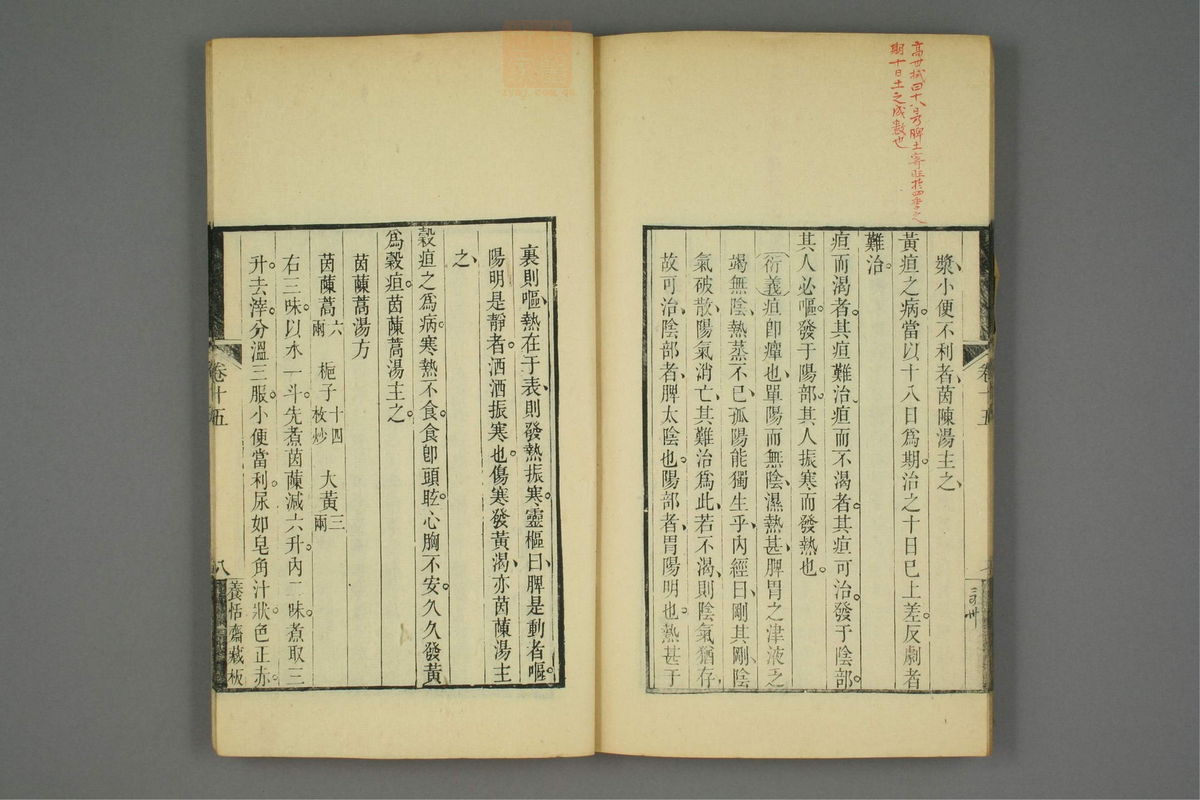 高世栻曰十八日乃脾土寄旺於四季之
期十日土之成數也
漿小便不利者茵陳湯主之
黃疸之病當以十八日爲期治之十日已上差反劇者
難治
疸而渴者其疸難治疸而不渴者其疸可治發于陰部
其人必嘔發于陽部其人振寒而發熱也
衍義疸卽癉也單陽而無陰濕熱甚脾胃之津液乏
竭無陰熱蒸不已孤陽能獨生乎內經曰剛其剛陰
氣破散陽氣消亡其難治爲此若不渴則陰氣猶存
故可治陰部者脾太陰也陽部者胃陽明也熱甚于
卷十五
裏則嘔熱在于表則發熱振寒靈樞曰脾是動者嘔
陽明是靜者洒洒振寒也傷寒發黃渴亦茵蔯湯主
之
穀疸之爲病寒熱不食食卽頭眩心胸不安久久發黃
爲穀疸茵蔯蒿湯主之
茵蔯蒿湯方
茵蔯蒿六兩 梔子十四枚炒 大黃三兩
右三味以水一斗先煮茵蔯減六升內二味煮取三
升去滓分溫三服小便當利尿如皂角汁狀色正赤
卷十五
八
養恬齋藏板